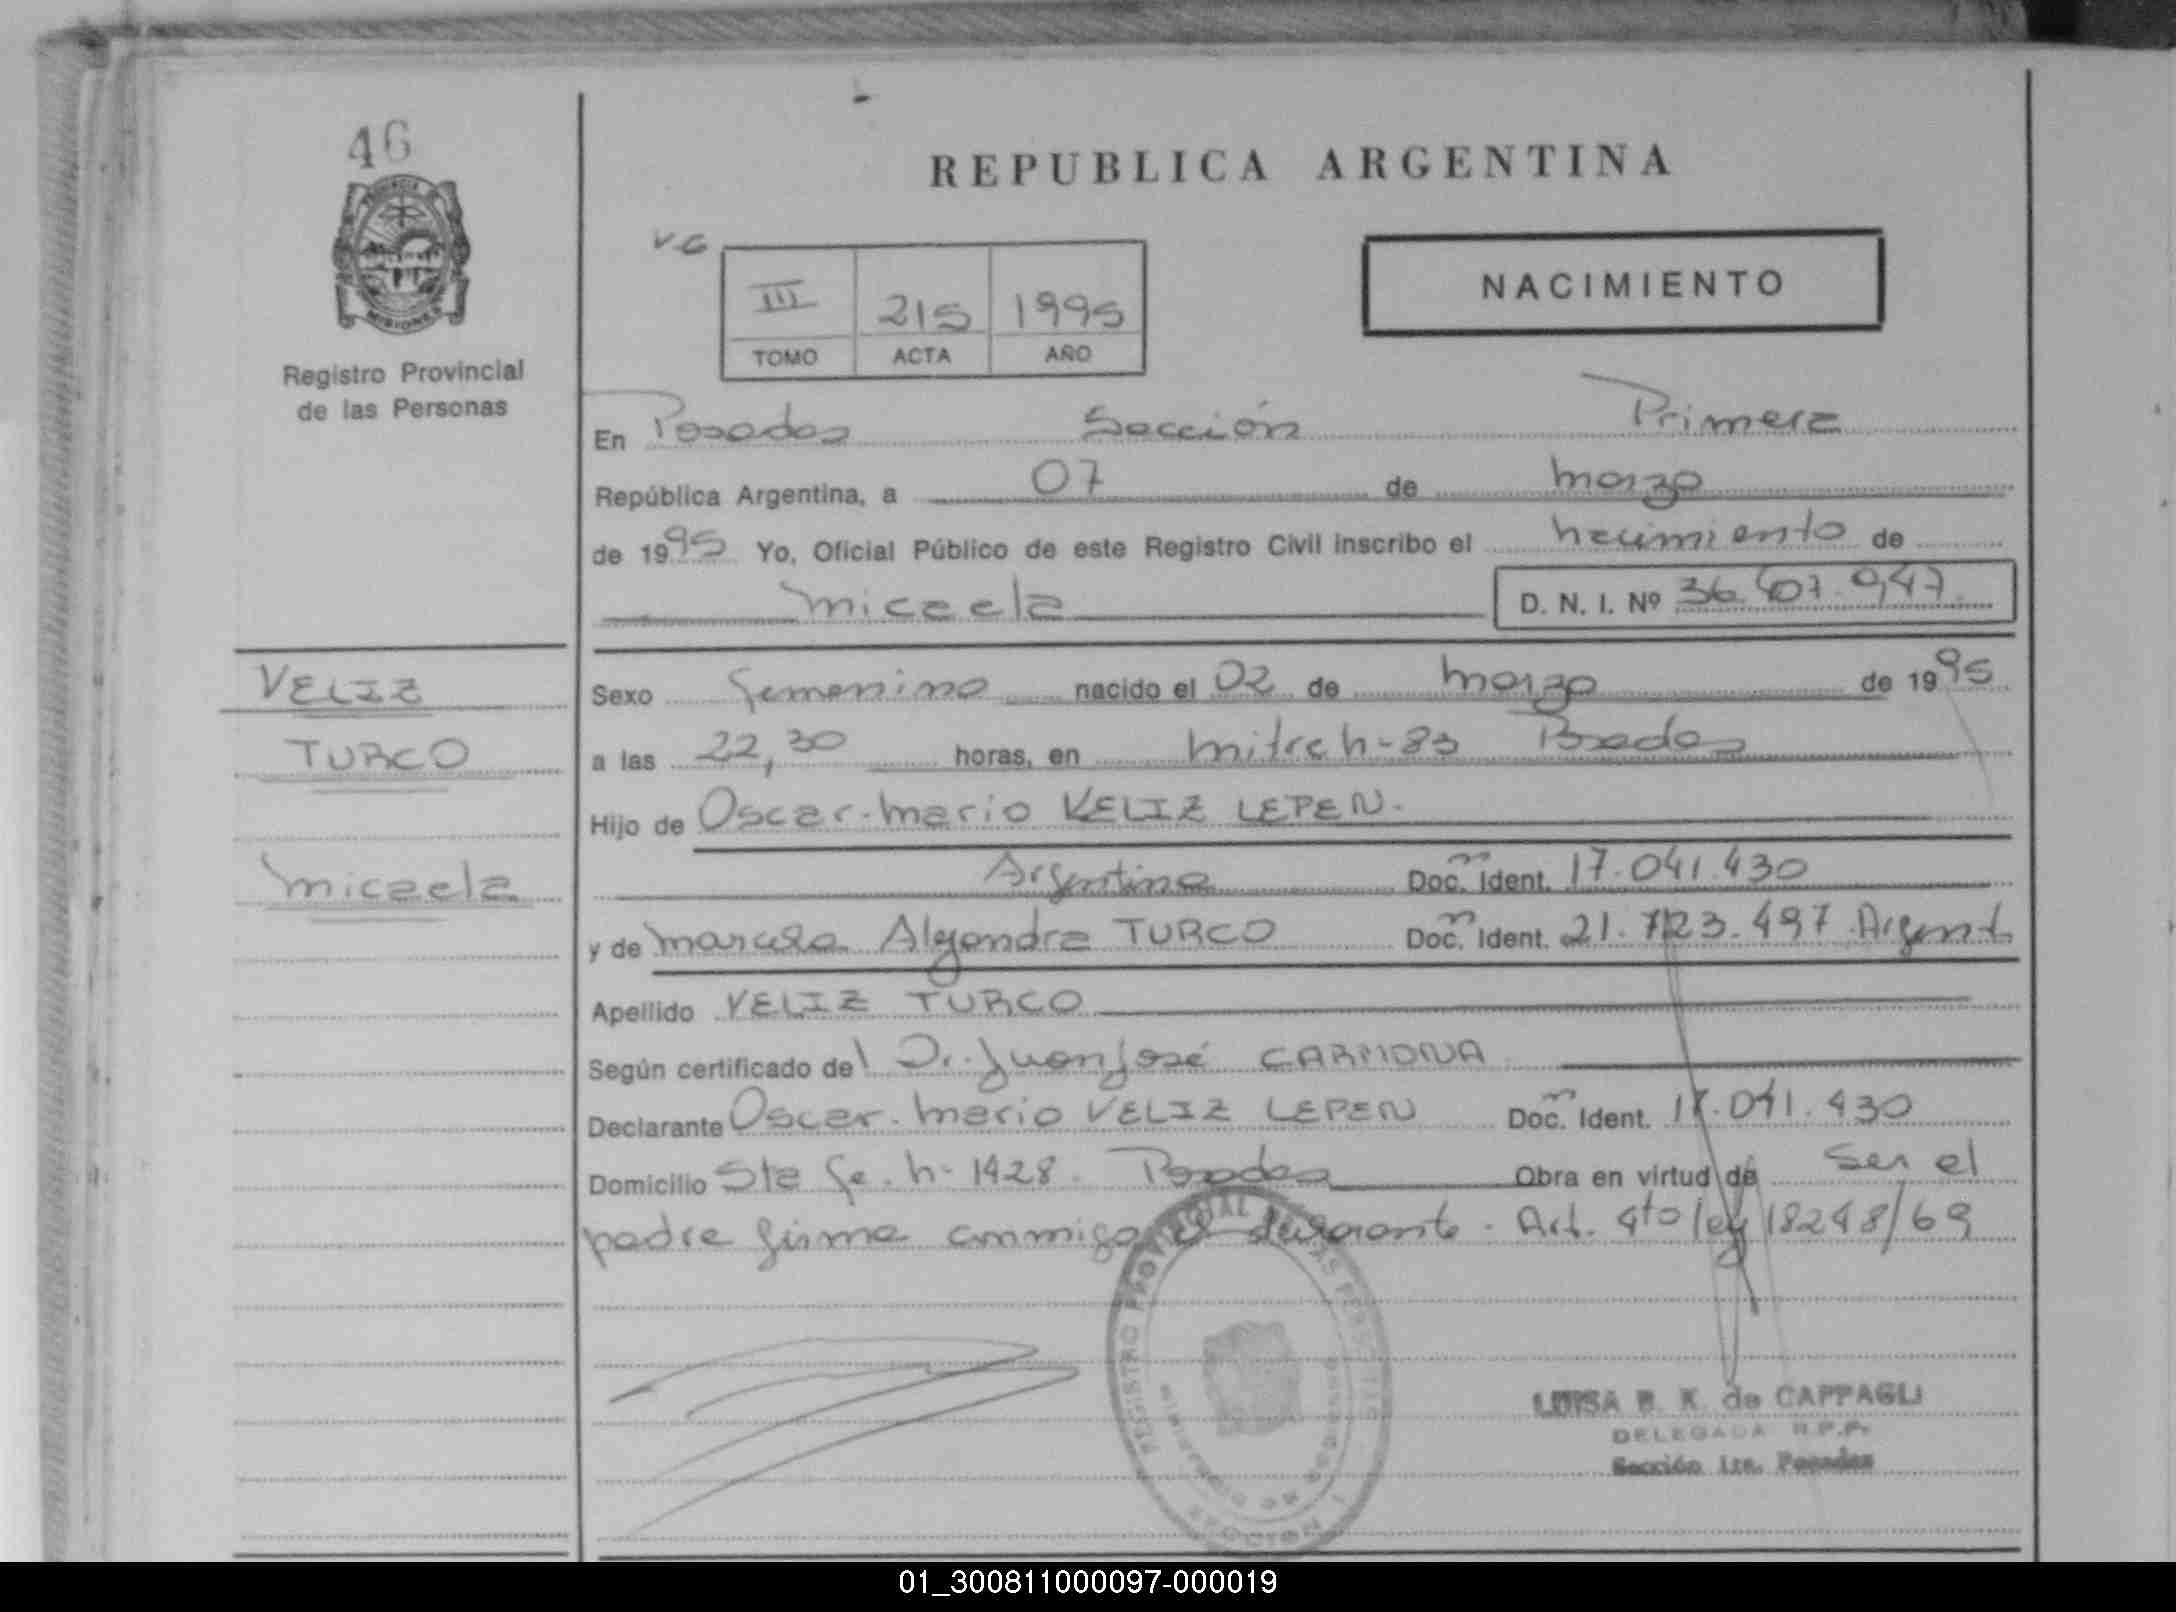 46
REPUBLICA ARGENTINA
PROVINCIA
MISIONES
Registro Provincial
de las Personas
V-6
III 215 1995
TOMO ACTA AÑO
NACIMIENTO
En Posadas Sección Primera
República Argentina, a 07 de marzo
de 1995 Yo, Oficial Público de este Registro Civil inscribo el nacimiento de
Micaela D. N. I. Nº 36.407.947
VELIZ
TURCO
Micaela
Sexo femenino nacido el 02 de marzo de 1995
a las 22,30 horas, en Mitre h-83 Posadas
Hijo de Oscar Mario VELIZ LEPEN.
Argentino Doc. Ident. 17.041.430
y de Marcela Alejandra TURCO Doc. Ident. 21.723.497 Argent.
Apellido VELIZ TURCO
Según certificado del Dr. Juan José CARMONA
Declarante Oscar Mario VELIZ LEPEN Doc. Ident. 17.041.430
Domicilio Sta Fe. h- 1428. Posadas Obra en virtud de Ser el
padre firma conmigo el declarante. Art. 4to ley 18248/69
REGISTRO PROVINCIAL DE LAS PERSONAS
LUISA R. K. de CAPPAGLI
DELEGADA R.P.P.
Sección 1ra. Posadas
01_300811000097-000019